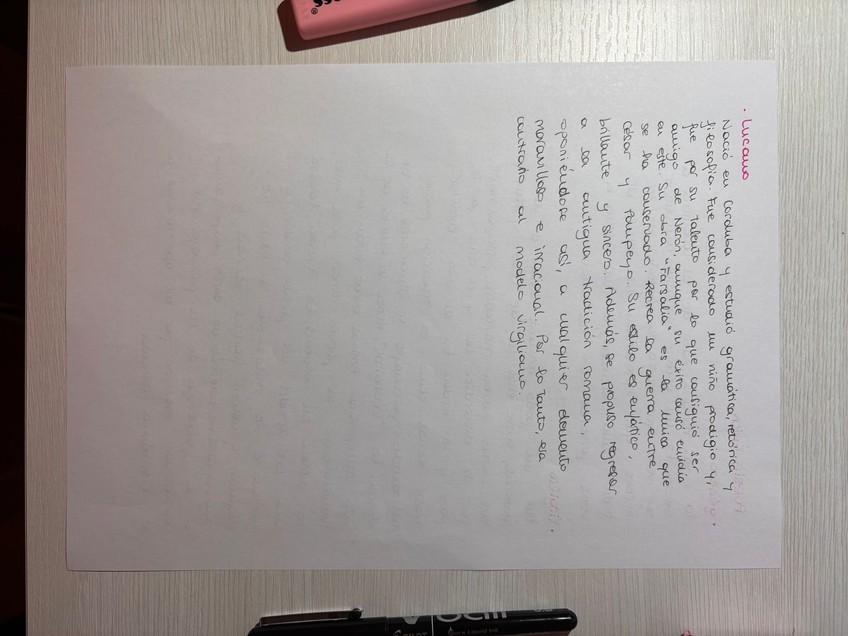 · Lucano
Nació en Corduba y estudió gramática, retórica y
filosofía. Fue considerado un niño prodigio y,
fue por su talento por lo que consiguió ser
amigo de Nerón, aunque su éxito causó envidia
en este. Su obra "Farsalia" es la única que
se ha conservado. Recrea la guerra entre
César y Pompeyo. Su estilo es enfático,
brillante y sincero. Además, se propuso regresar
a la antigua tradición romana,
oponiéndose así, a cualquier elemento
maravilloso e irracional. Por lo tanto, era
contrario al modelo virgiliano.
PILOT